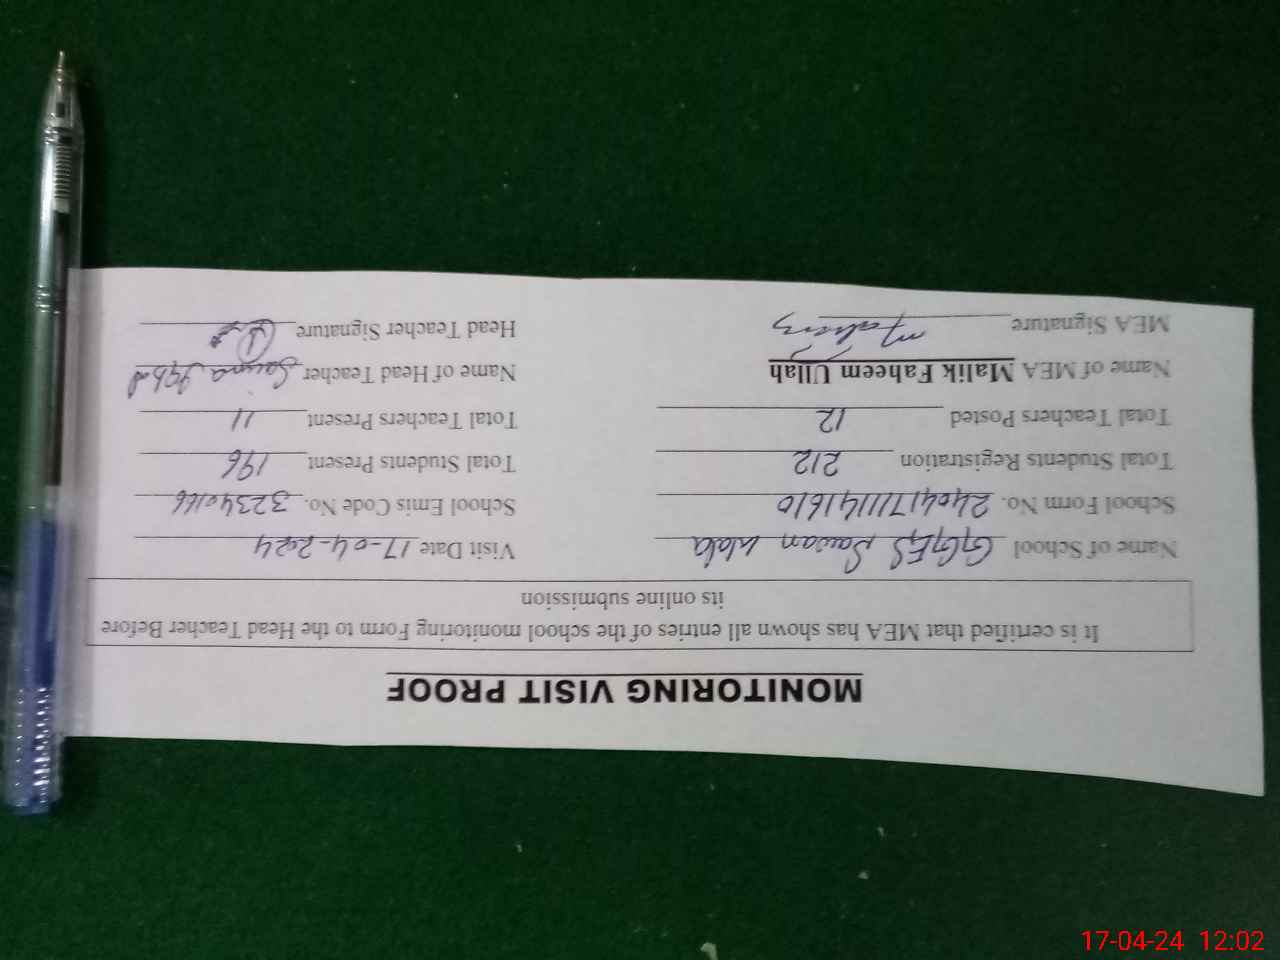 MONITORING VISIT PROOF
It is certified that MEA has shown all entries of the school monitoring Form to the Head Teacher Before
its online submission
Name of School GGES Sawan Wala Visit Date 17-04-2024
School Form No. 24041711141610 School Emis Code No. 32340166
Total Students Registration 212 Total Students Present 196
Total Teachers Posted 12 Total Teachers Present 11
Name of MEA Malik Faheem Ullah Name of Head Teacher Saima Iqbal
MEA Signature Head Teacher Signature
17-04-24 12:02